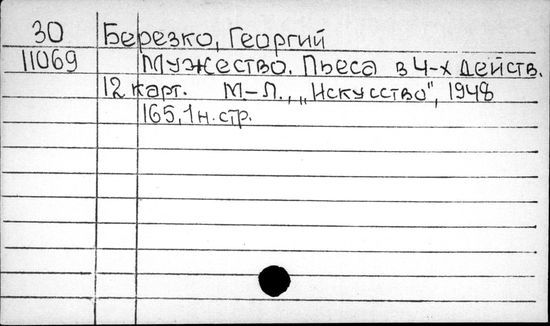 30 Березко, Георгий
11069 Мужество. Пьеса в 4-х действ.
12 карт. М-Л., „Искусство", 1948
165, 1 н. стр.